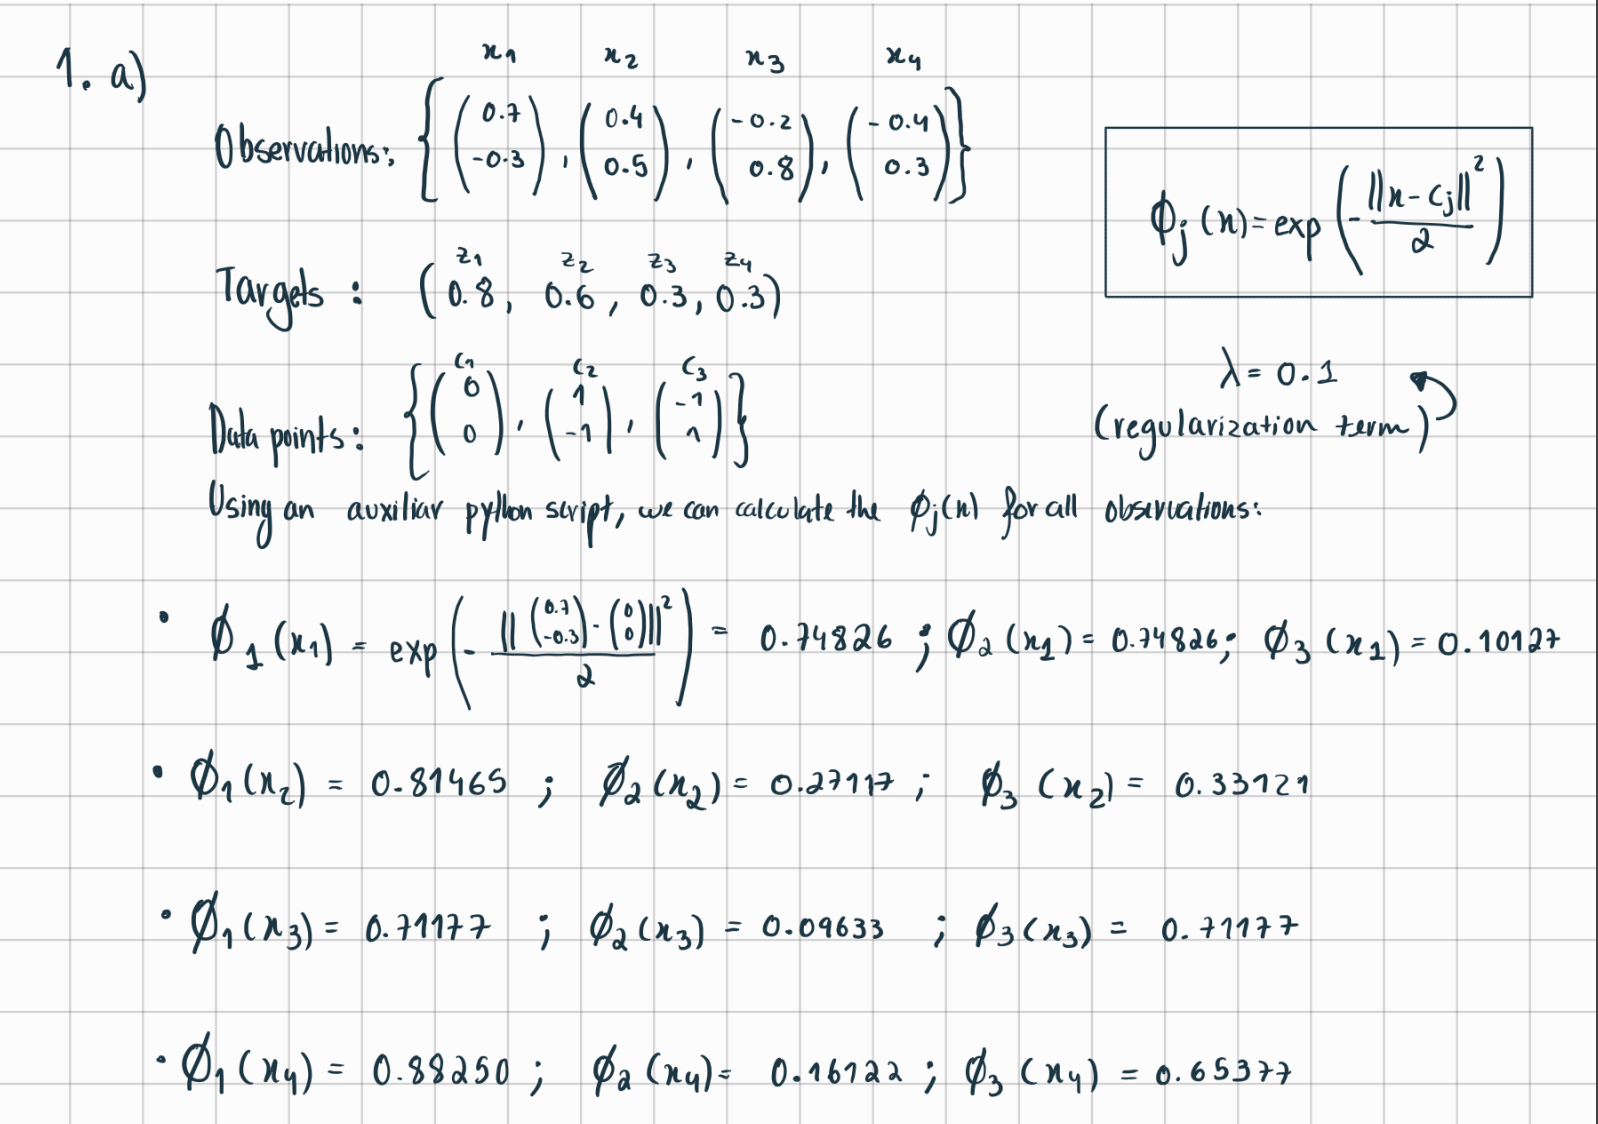 1. a)
x1 x2 x3 x4
Observations: { (0.7 -0.3), (0.4 0.5), (-0.2 0.8), (-0.4 0.3) }
ϕj(x) = exp(-||x-cj||²/2)
Targets : (0.8, 0.6, 0.3, 0.3)
z1 z2 z3 z4
λ = 0.1
(regularization term)
c1 c2 c3
Data points: { (0 0), (1 -1), (-1 1) }
Using an auxiliar python script, we can calculate the ϕj(x) for all observations:
• ϕ1(x1) = exp(-||(0.7 -0.3) - (0 0)||²/2) = 0.74826 ; ϕ2(x1) = 0.74826; ϕ3(x1) = 0.10127
• ϕ1(x2) = 0.81465 ; ϕ2(x2) = 0.27117 ; ϕ3(x2) = 0.33121
• ϕ1(x3) = 0.71177 ; ϕ2(x3) = 0.09633 ; ϕ3(x3) = 0.71177
• ϕ1(x4) = 0.88250 ; ϕ2(x4) = 0.16122 ; ϕ3(x4) = 0.65377